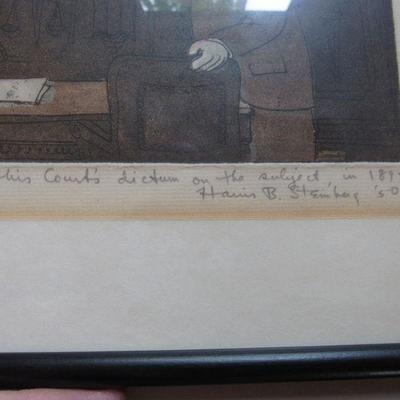 this Court's dictum on the subject in 189
Harris B. Steinberg '50